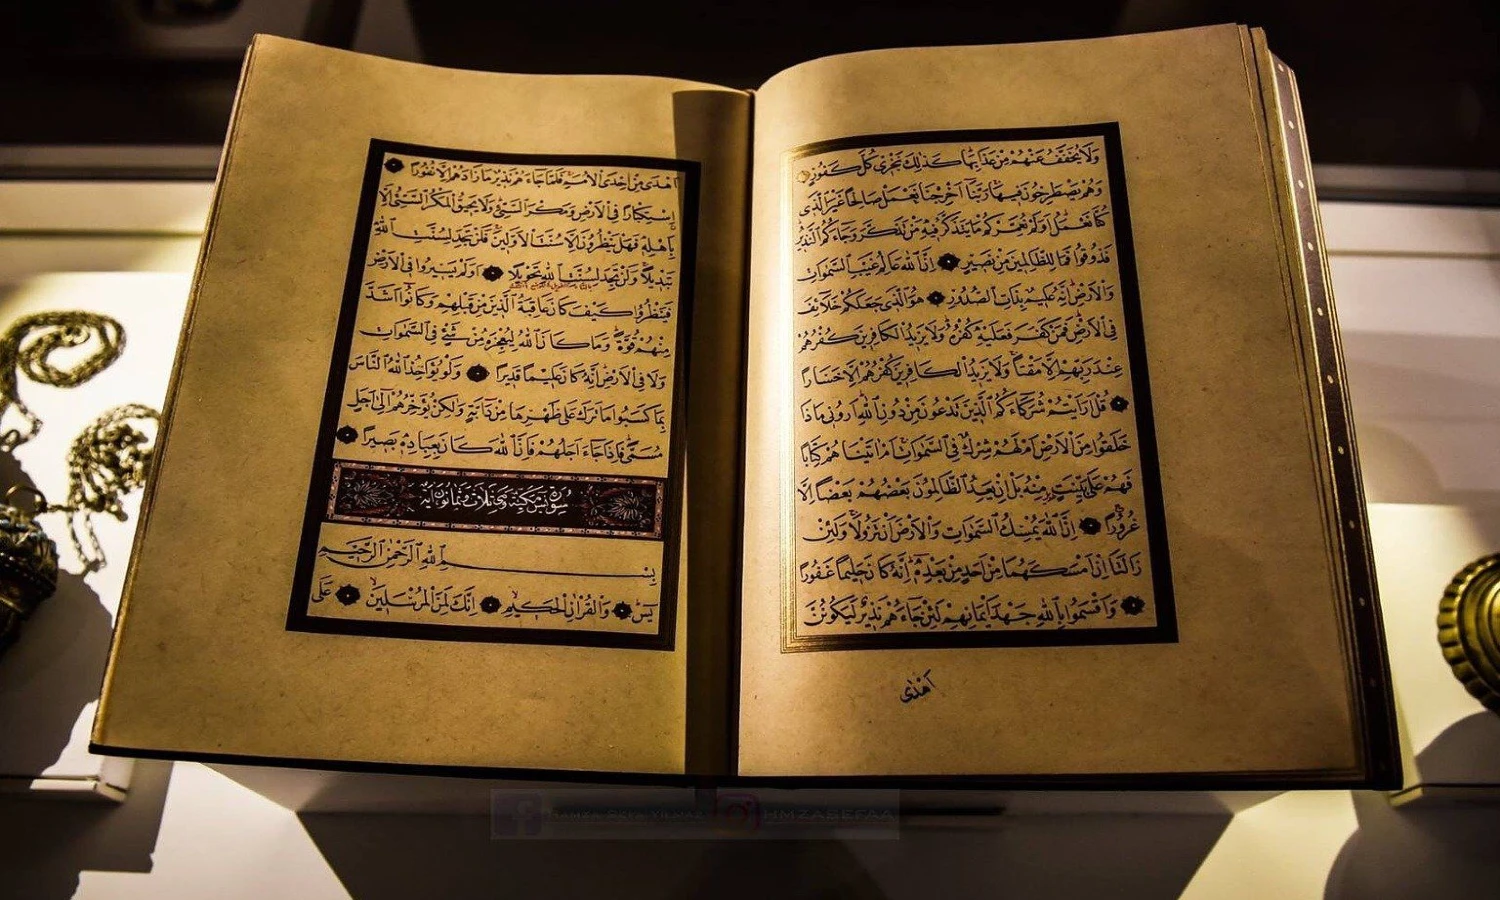 وَلَا يُخَفَّفُ عَنْهُمْ مِنْ عَذَابِهَا كَذٰلِكَ نَجْزِى كُلَّ كَفُورٍ
وَهُمْ يَصْطَرِخُونَ فِيهَا رَبَّنَا اَخْرِجْنَا نَعْمَلْ صَالِحًا غَيْرَ الَّذِى
كُنَّا نَعْمَلُ اَوَلَمْ نُعَمِّرْكُمْ مَا يَتَذَكَّرُ فِيهِ مَنْ تَذَكَّرَ وَجَاءَكُمُ النَّذِيرُ
فَذُوقُوا فَمَا لِلظَّالِمِينَ مِنْ نَصِيرٍ اِنَّ اللّٰهَ عَالِمُ غَيْبِ السَّمٰوَاتِ
وَالْاَرْضِ اِنَّهُ عَلِيمٌ بِذَاتِ الصُّدُورِ هُوَ الَّذِى جَعَلَكُمْ خَلَائِفَ
فِى الْاَرْضِ فَمَنْ كَفَرَ فَعَلَيْهِ كُفْرُهُ وَلَا يَزِيدُ الْكَافِرِينَ كُفْرُهُمْ
عِنْدَ رَبِّهِمْ اِلَّا مَقْتًا وَلَا يَزِيدُ الْكَافِرِينَ كُفْرُهُمْ اِلَّا خَسَارًا
قُلْ اَرَاَيْتُمْ شُرَكَاءَكُمُ الَّذِينَ تَدْعُونَ مِنْ دُونِ اللّٰهِ اَرُونِى مَاذَا
خَلَقُوا مِنَ الْاَرْضِ اَمْ لَهُمْ شِرْكٌ فِى السَّمٰوَاتِ اَمْ اٰتَيْنَاهُمْ كِتَابًا
فَهُمْ عَلٰى بَيِّنَتٍ مِنْهُ بَلْ اِنْ يَعِدُ الظَّالِمُونَ بَعْضُهُمْ بَعْضًا اِلَّا
غُرُورًا اِنَّ اللّٰهَ يُمْسِكُ السَّمٰوَاتِ وَالْاَرْضَ اَنْ تَزُولَا وَلَئِنْ
زَالَتَا اِنْ اَمْسَكَهُمَا مِنْ اَحَدٍ مِنْ بَعْدِهِ اِنَّهُ كَانَ حَلِيمًا غَفُورًا
وَاَقْسَمُوا بِاللّٰهِ جَهْدَ اَيْمَانِهِمْ لَئِنْ جَاءَهُمْ نَذِيرٌ لَيَكُونُنَّ
اَهْدٰى
اَهْدٰى مِنْ اِحْدَى الْاُمَمِ فَلَمَّا جَاءَهُمْ نَذِيرٌ مَا زَادَهُمْ اِلَّا نُفُورًا
اِسْتِكْبَارًا فِى الْاَرْضِ وَمَكْرَ السَّيِّئِ وَلَا يَحِيقُ الْمَكْرُ السَّيِّئُ اِلَّا
بِاَهْلِهِ فَهَلْ يَنْظُرُونَ اِلَّا سُنَّتَ الْاَوَّلِينَ فَلَنْ تَجِدَ لِسُنَّتِ اللّٰهِ
تَبْدِيلًا وَلَنْ تَجِدَ لِسُنَّتِ اللّٰهِ تَحْوِيلًا اَوَلَمْ يَسِيرُوا فِى الْاَرْضِ
فَيَنْظُرُوا كَيْفَ كَانَ عَاقِبَةُ الَّذِينَ مِنْ قَبْلِهِمْ وَكَانُوا اَشَدَّ
مِنْهُمْ قُوَّةً وَمَا كَانَ اللّٰهُ لِيُعْجِزَهُ مِنْ شَيْءٍ فِى السَّمٰوَاتِ
وَلَا فِى الْاَرْضِ اِنَّهُ كَانَ عَلِيمًا قَدِيرًا وَلَوْ يُؤَاخِذُ اللّٰهُ النَّاسَ
بِمَا كَسَبُوا مَا تَرَكَ عَلٰى ظَهْرِهَا مِنْ دَابَّةٍ وَلٰكِنْ يُؤَخِّرُهُمْ اِلٰى اَجَلٍ
مُسَمًّى فَاِذَا جَاءَ اَجَلُهُمْ فَاِنَّ اللّٰهَ كَانَ بِعِبَادِهِ بَصِيرًا
سورة يس مكية وهى ثلاث وثمانون اية
بِسْمِ اللّٰهِ الرَّحْمٰنِ الرَّحِيمِ
يٰسٓ وَالْقُرْاٰنِ الْحَكِيمِ اِنَّكَ لَمِنَ الْمُرْسَلِينَ عَلٰى
HMZASEFAA